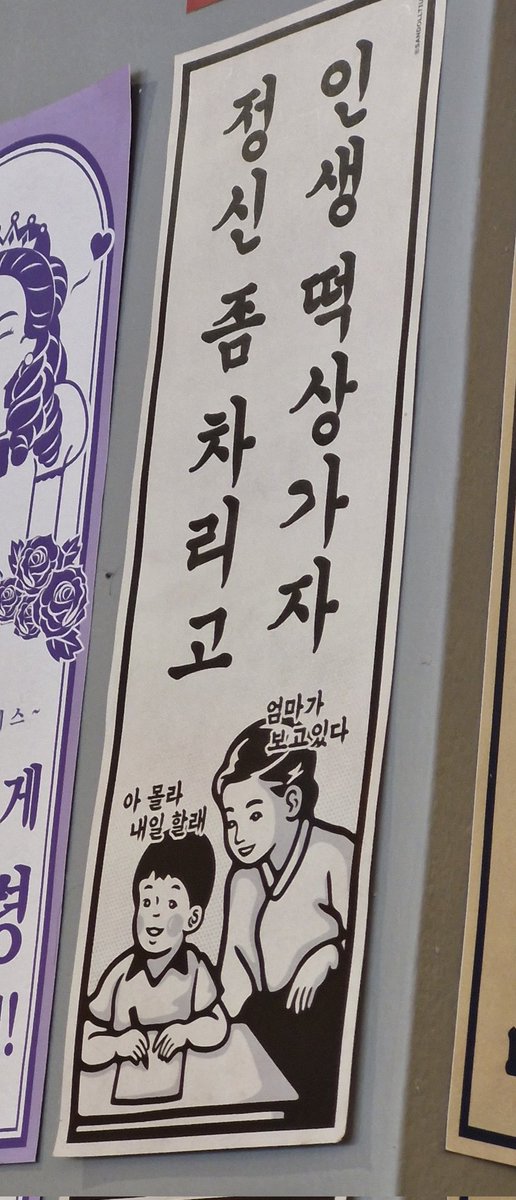 정신 좀 차리고
인생 떡상가자
엄마가
보고있다
아 몰라
내일 할래
스~
게